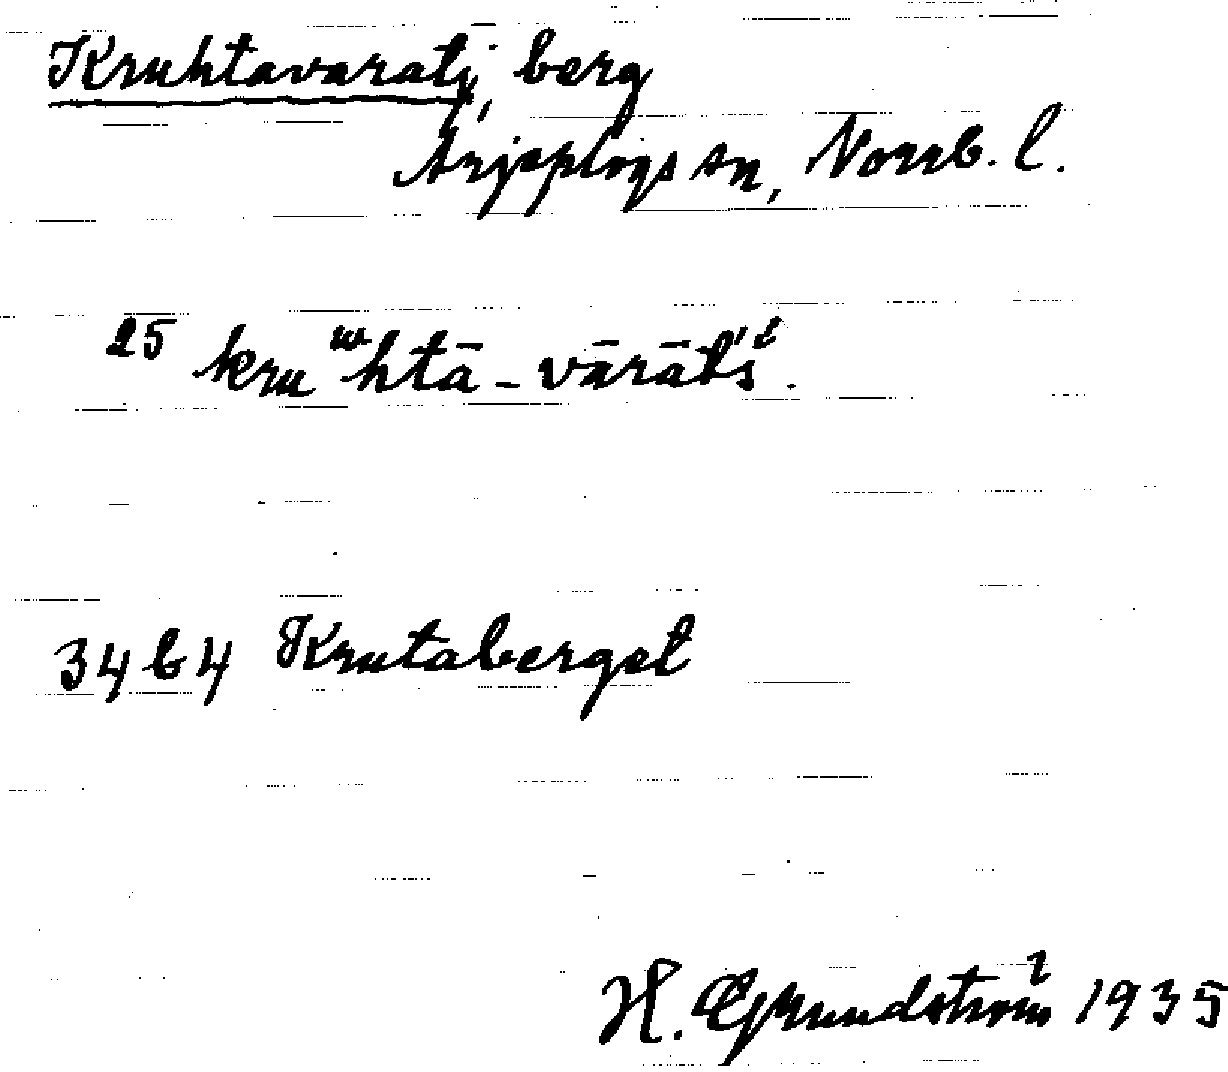 Kruhtavaratj, berg
Arjeplogs sn, Norrb. l.
25 kruʷhtā-vārāt́śᵉ.
34b4 Krutaberget
H. Grundström 1935